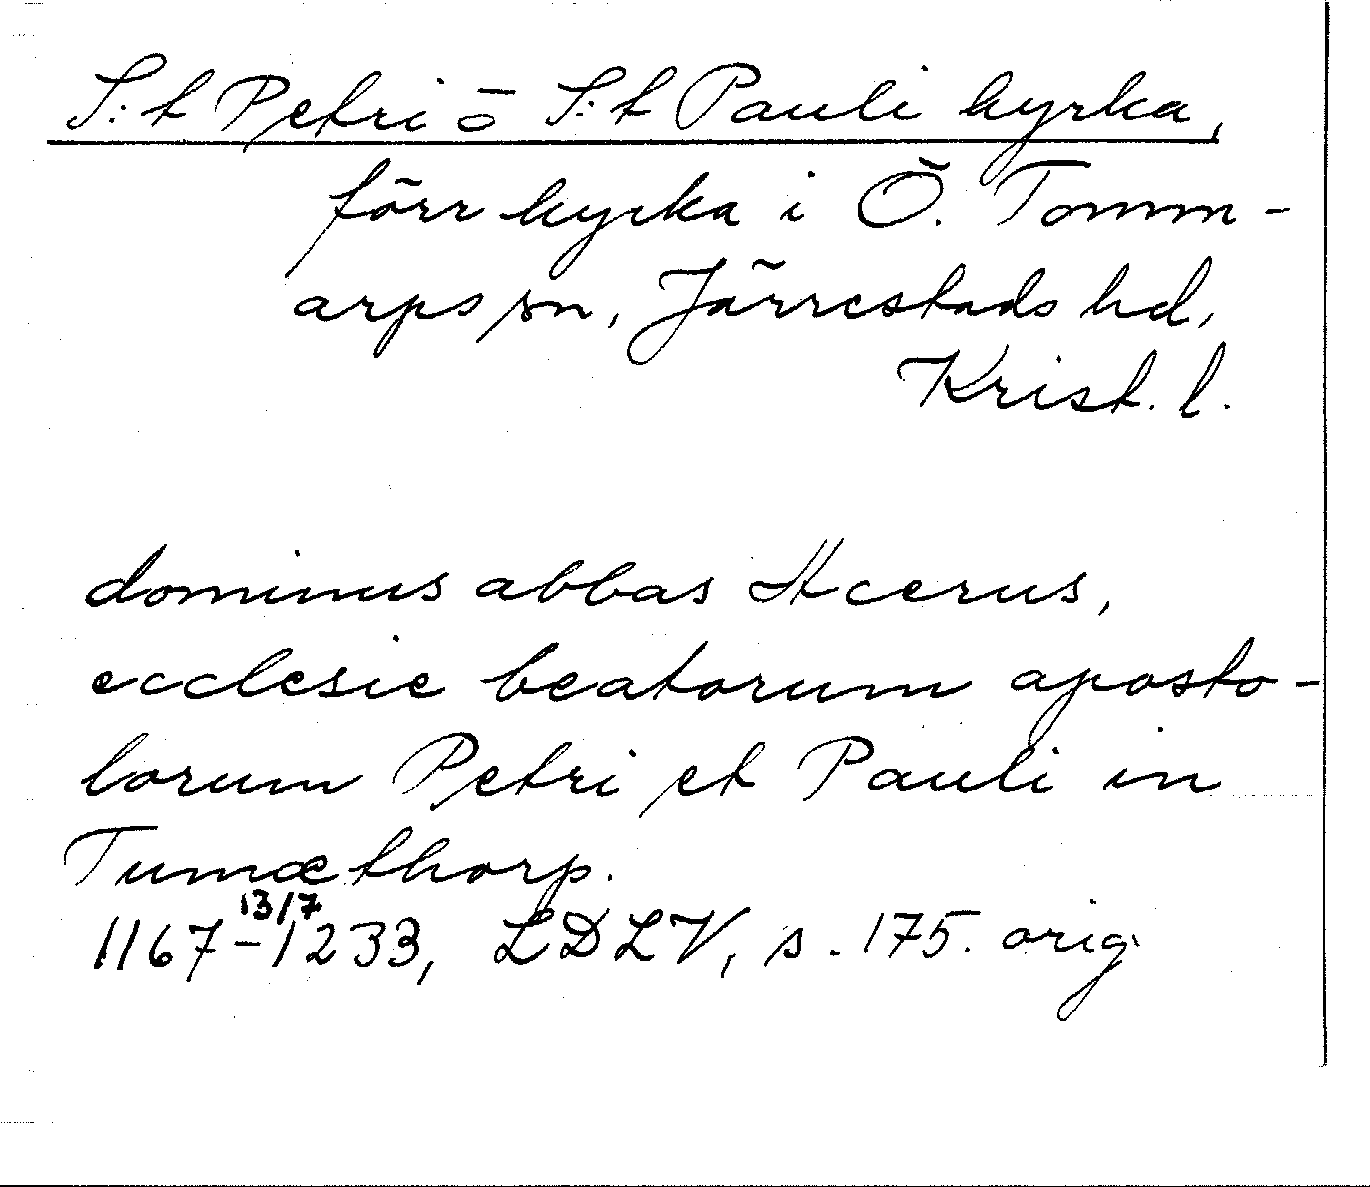 S:t Petri o S:t Pauli kyrka,
förr kyrka i Ö. Tomm-
arps sn, Järrestads hd,
Krist. l.
dominus abbas Acerus,
ecclesie beatorum aposto-
lorum Petri et Pauli in
Tumæthorp.
13/7
1167-1233, LDLV, s. 175. orig.